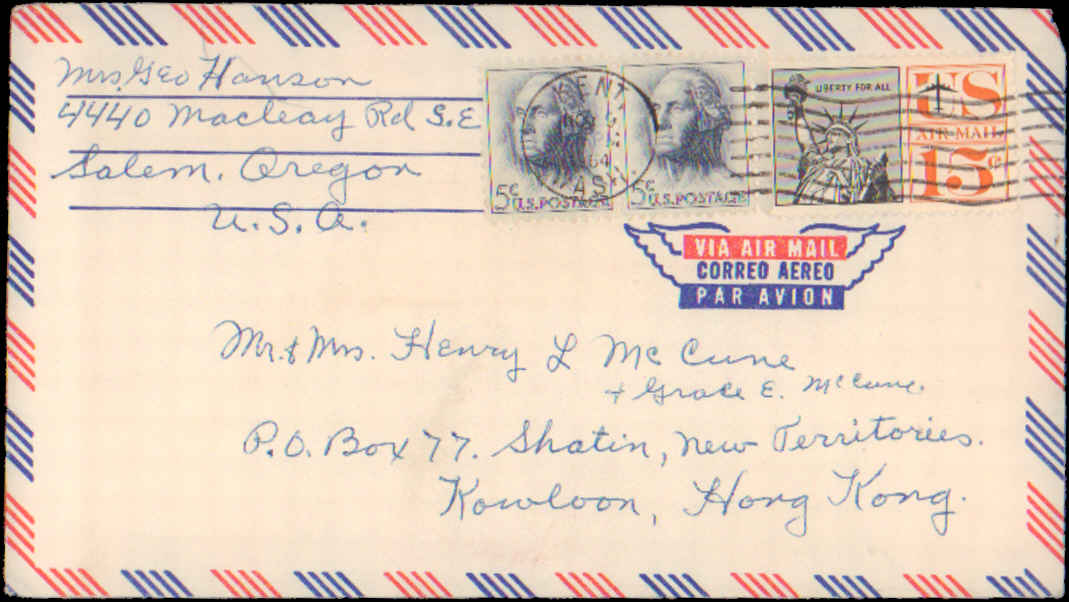 Mrs. Geo Hanson
4440 Macleay Rd S.E
Salem, Oregon
U.S.A.
KENT
64
WASH
5c U.S. POSTAGE
5c U.S. POSTAGE
LIBERTY FOR ALL
US
AIR MAIL
15c
VIA AIR MAIL
CORREO AEREO
PAR AVION
Mr. & Mrs. Henry L McCune
+ Grace E. McCune.
P.O. Box 77. Shatin, New Territories.
Kowloon, Hong Kong.